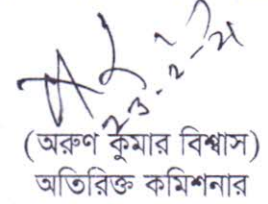 ২৩-২-২১
(অরুণ কুমার বিশ্বাস)
অতিরিক্ত কমিশনার